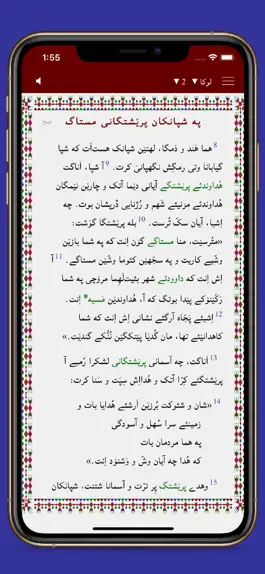 1:55
لوکا ▼ 2 ▼
په شپانکان پرێشتگانی مستاگ
8 هما هَند و دَمگا، لهتێن شپانک هستاَت که شپا
گیابانا وتی رمگِش نگهپانیَ کرت. 9 آ شپا، اَناگت
هُداوندئے پرێشتگے آیانی دێما آتک و چارێن نێمگان
هُداوندئے مزنیئے شَهم و رُژنایی دْرپشان بوت. چه
اِشیا، آیان سکّ تُرست. 10 بله پرێشتگا گوَشت:
«مثُرسێت، منا مستاگے گۆن اِنت که په شما بازێن
وشّیے کاریت و په سجّهێن کئوما وشّێن مستاگے. 11 آ
اِش اِنت که داوودئے شهر بئیت‌لَهِما مرۆچی په شما
رَکّێنۆکے پێدا بوتگ که آ، هُداوندێن مَسیه* اِنت.
12 اِشیئے پَجّاه آرگئے نشانی اِش اِنت که شما
گدانئے تها، مان گُدّیا پَتتکگێن نُنُّکے گندێت.»
13 اَناگت، چه آسمانی پرێشتگانی لشکرا رُمبے آ
پرێشتگئے کِرّا آتک و هُدااِش سِپَت و سَنا کرت:
14 «شان و شئوکت بُرزێن اَرشئے هُدایا بات و
زمینئے سرا سُهل و آسودگی
په هما مردمان بات
که هُدا چه آیان وشّ و وَشنود اِنت.»
15 وهدے پرێشتگ پر ترّت و آسمانا شتنت، شپانکان